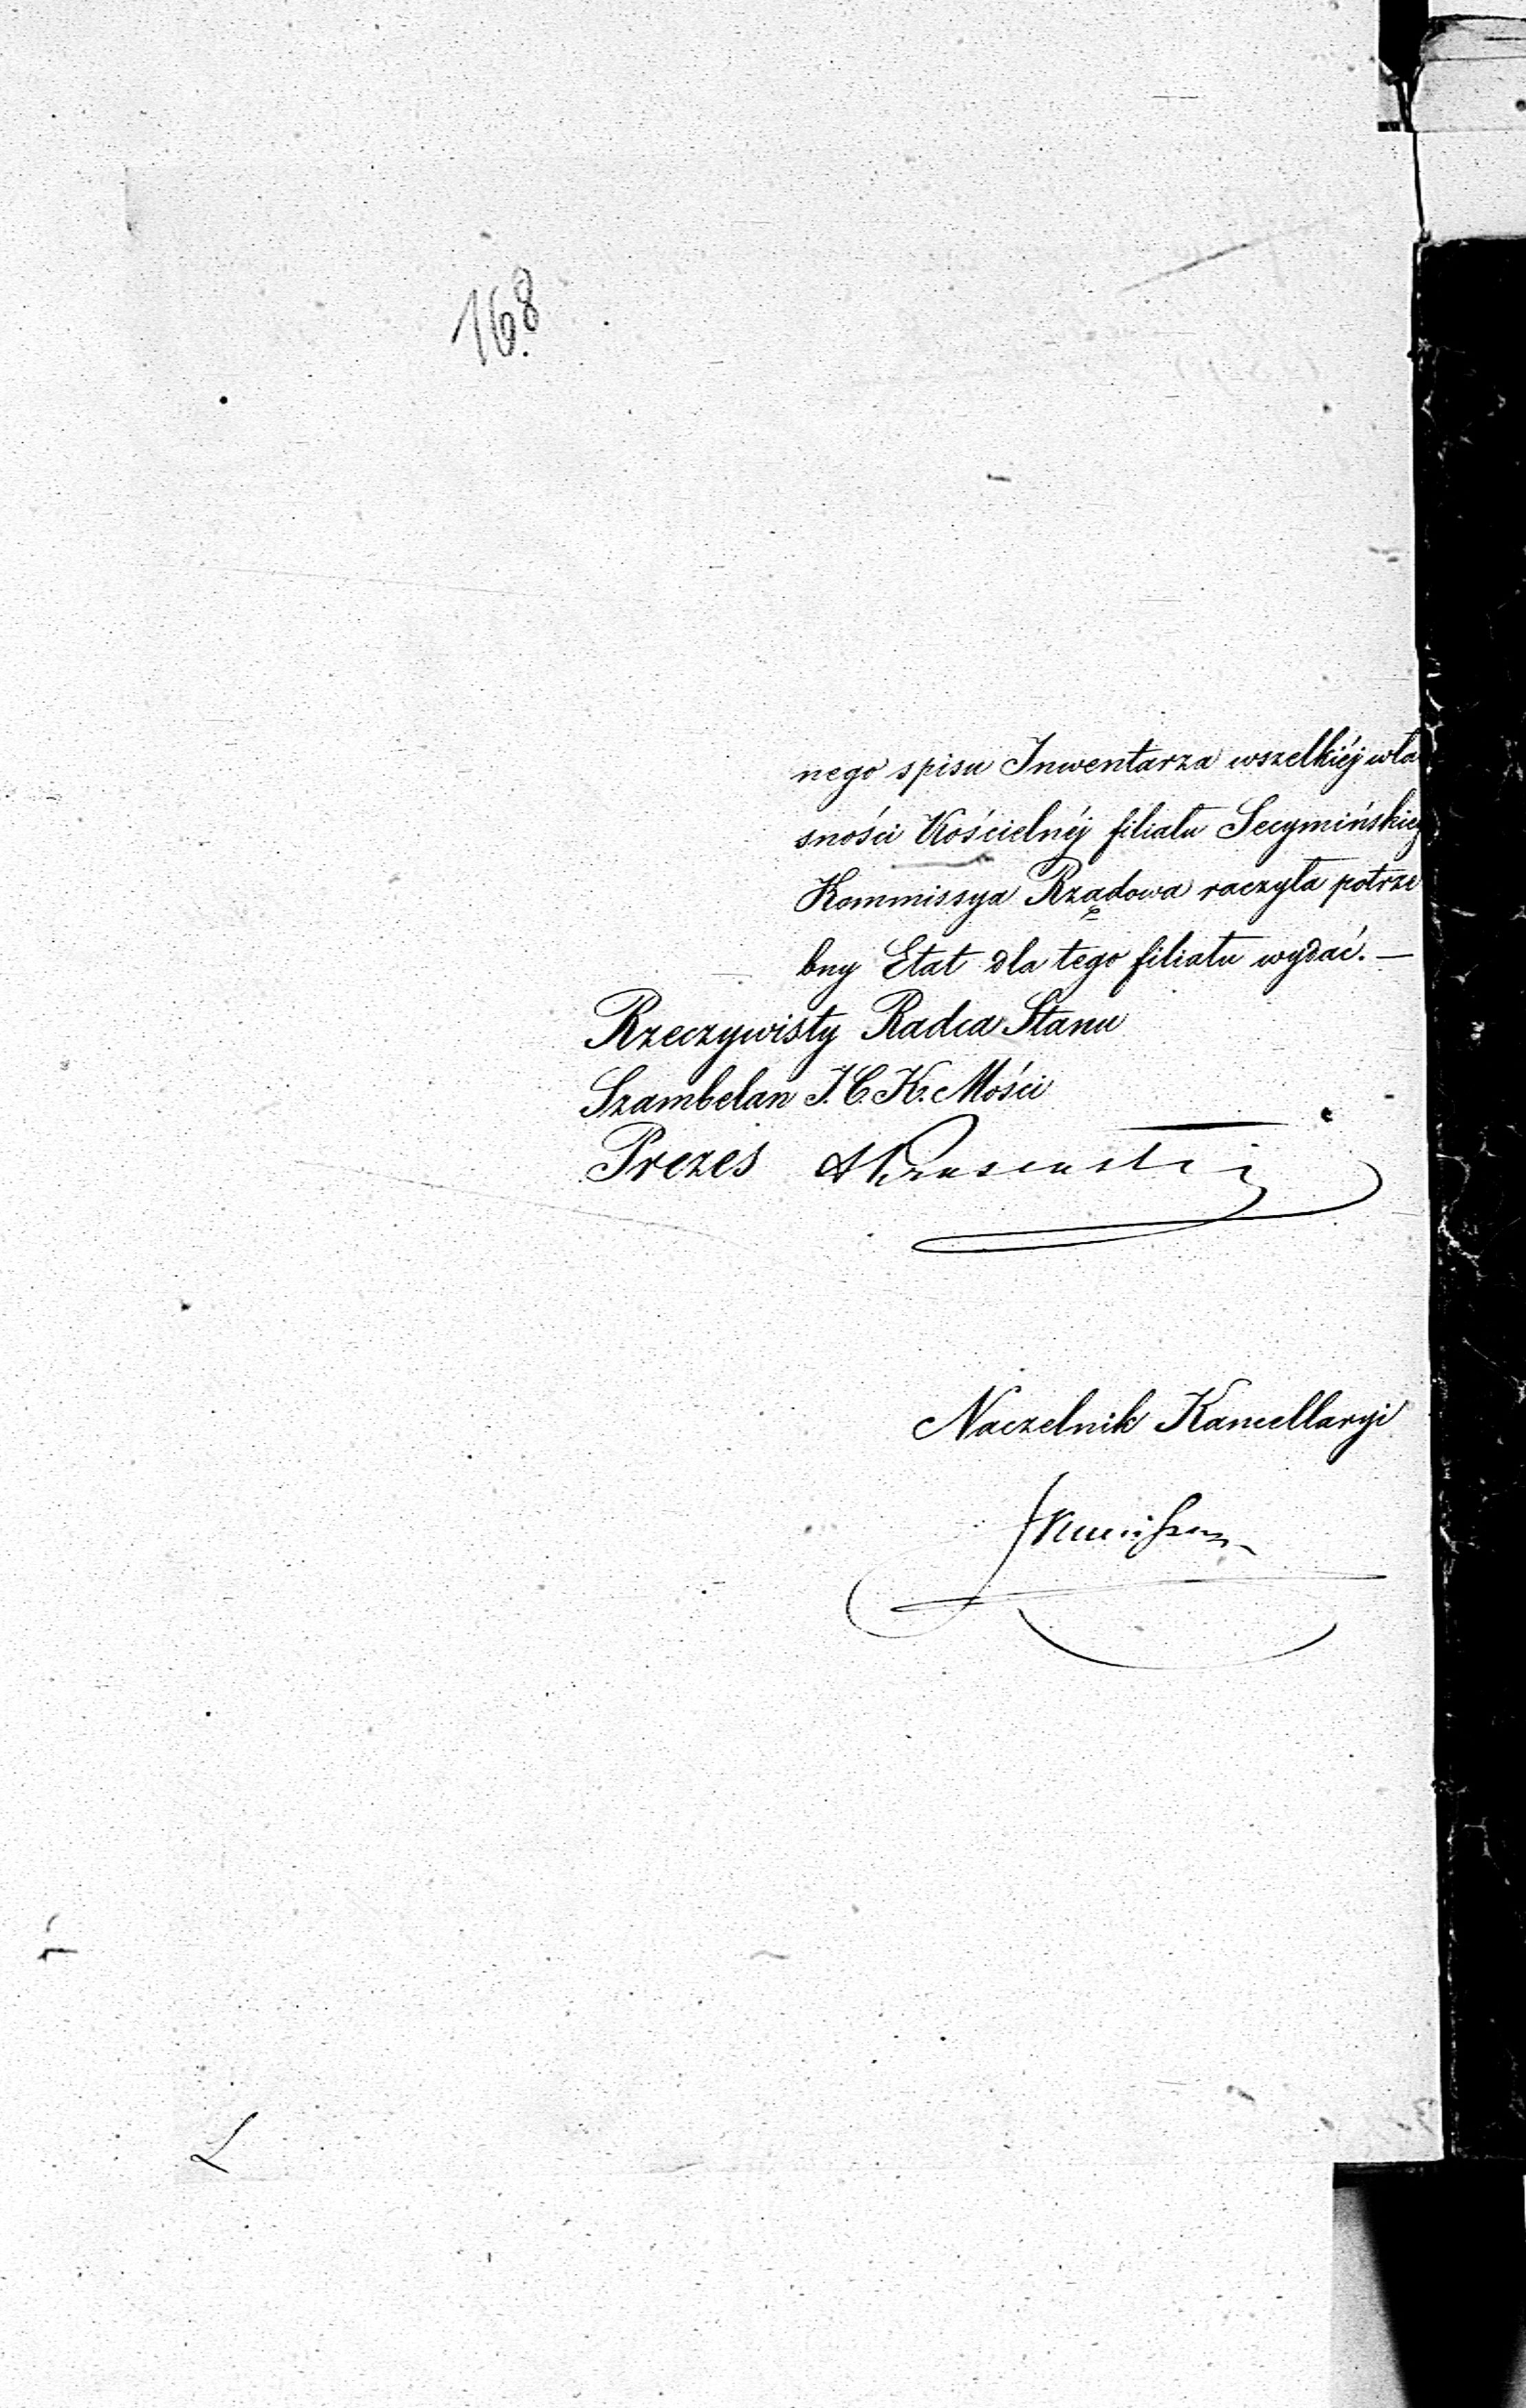 168
nego spisu Inwentarza wszelkiéj wła
sności Kościelnéj filiału Secymińskiej
Kommissya Rządowa raczyła potrze
bny Etat dla tego filiału wydać. —
Rzeczywisty Radca Stanu
Szambelan J. C. K. Mości
Prezes
Naczelnik Kancellaryi